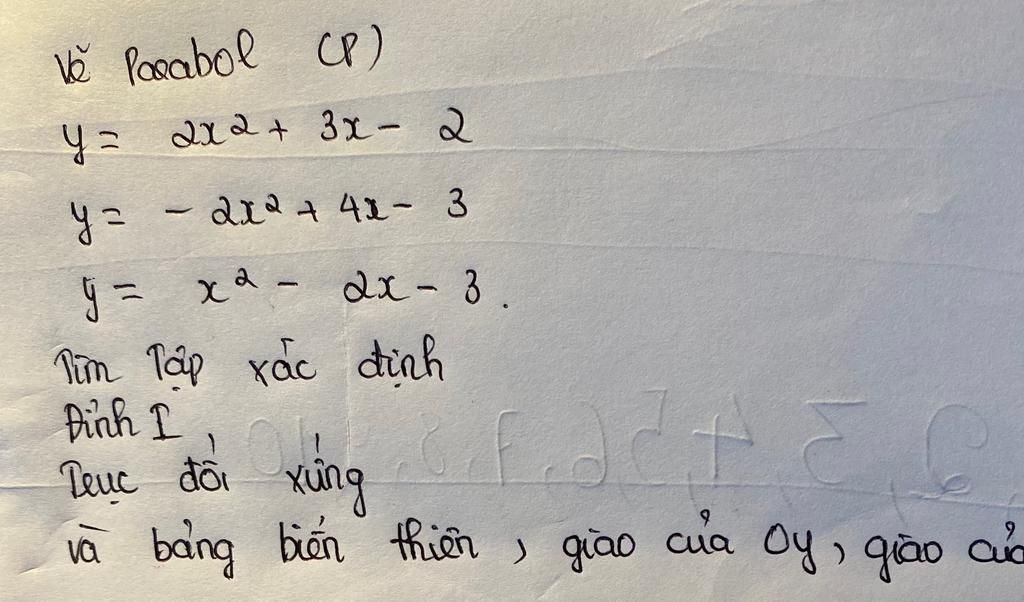 Vẽ Parabol (P)
y = 2x2 + 3x - 2
y = - 2x2 + 4x - 3
y = x2 - 2x - 3.
Tìm Tập xác định
Đỉnh I,
Trục đối xứng
và bảng biến thiên, giao của Oy, giao của